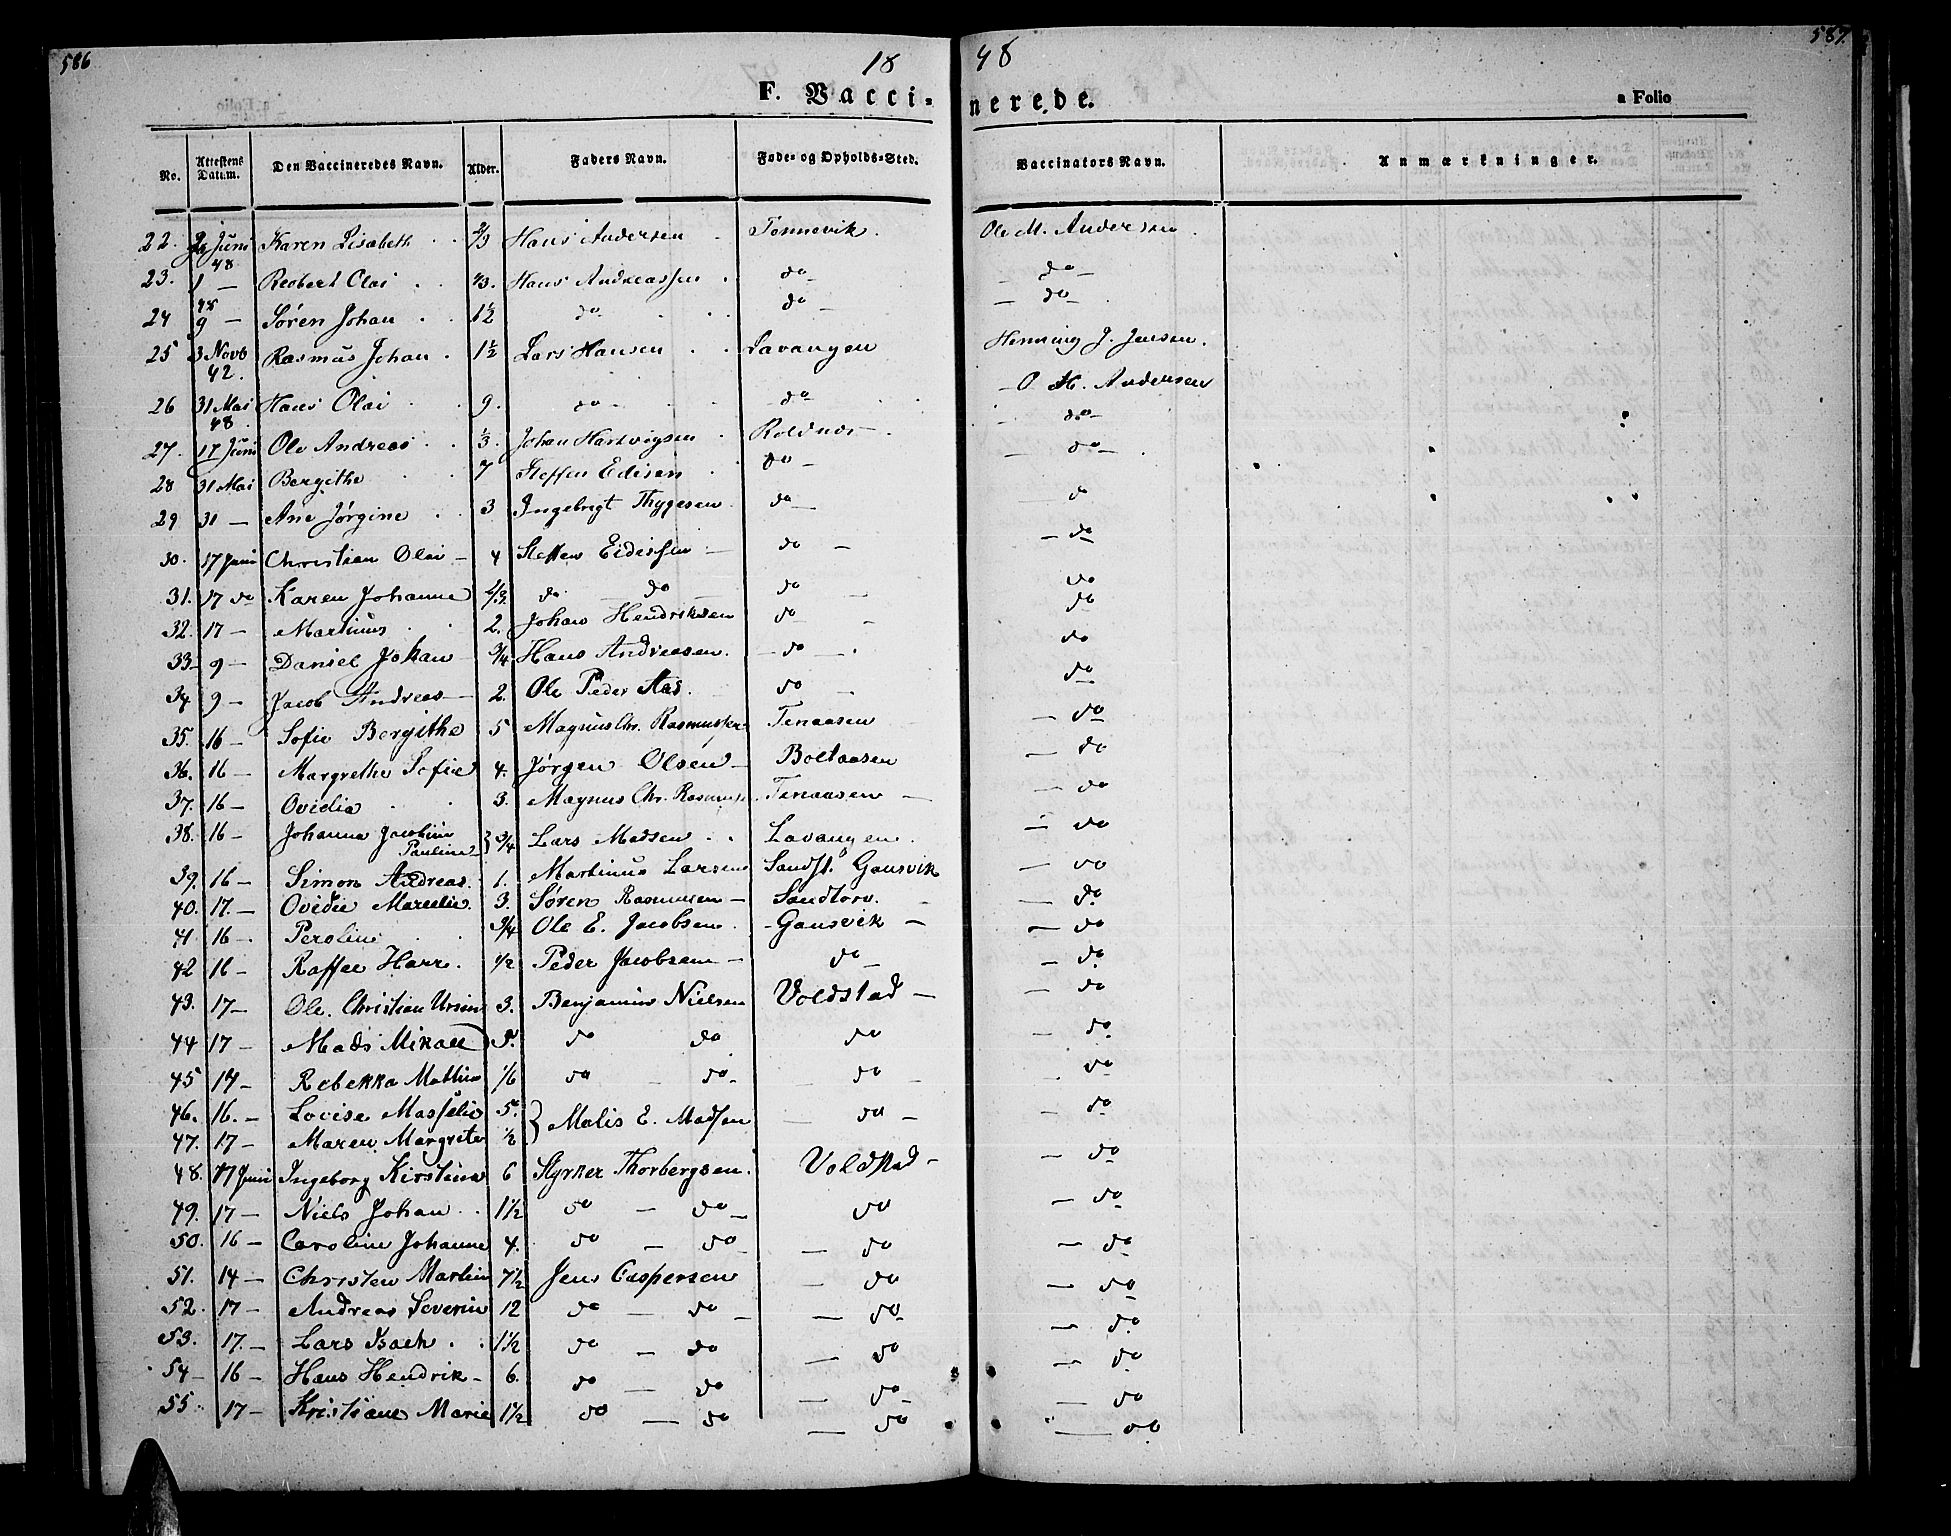 586 18 48 587.
F. Vacci- nerede. a Folio
No. Attestens Datum. Den Vaccineredes Navn. Alder. Faders Navn. Føde- og Opholds-Sted. Vaccinators Navn. Anmærkninger.
22. Juni 48 Karen Lisabeth 2/3 Hans Andersen Tennevik. Ole M. Andersen
23. 1 — Reobert Olai 2/3. Hans Andreassen do — do —
24 48 9 — Søren Johan 1½ do do — — do —
25 3 Novb 42. Rasmus Johan 1½ Lars Hansen Lavangen Henning J. Jensen.
26 31 Mai 48. Hans Olai 9. do — do — O. H. Andersen
27. 17 Juni Ole Andreas 1/3. Johan Hartvigsen Roldnes — do —
28 31 Mai Bergithe 7 Steffen Edisen do — — do —
29 31 — Ane Jørgine 3 Ingebrigt Thygesen do — — do
30. 17 Juni Christian Olai — 4 Steffen Eidissen — do — — do
31. 17 do Karen Johanne 2/3. do — do — do — do
32. 17 — Martinus 2. Johan Hendriksen do — do
33 — 9 — Daniel Johan 3/4. Hans Andreasen. — do — do
34 9 — Jacob Andreas — 2. Ole Peder Aas. do — do
35. 16 — Sofie Bergithe 5 Magnus Chr. Rasmussen Tenaasen — do
36. 16 — Margrethe Sofie 4. Jørgen Olsen — Boltaasen — do
37. 16 — Ovidia 3. Magnus Chr. Rasmuss. Tenaasen — — do
38. 16 — Johanna Jacobine Pauline } 3/4 Lars Madsen Lavangen. — do
39. 16 — Simon Andreas. 1. Martinus Larsen Sandst. Gansvik — do
40. 17. — Ovidie Marcelie. 3. Søren Rasmusen — Sandtorv. — do
41 16 — Peroline 3/4 Ole E. Jacobsen. Gansvik — — do
42 16 — Raffae Harr. 1/2 Peder Jacobsen — do — — do
43. 17 — Ole Christian Ursin 3. Benjamin Nielsen Voldstad — — do
44 17 — Mads Mikael 5. do do do — do
45 17 — Rebekka Mathea 1/6 do — do — do — — do
46. 16. — Lovise Masselie 5. } Malis E. Madsen — do — — do
47. 17 — Maren Margrete ½
48. 17 Juni Ingeborg Kirstine 6 Styrker Thorbergsen. Voldstad — — do
49. 17 — Niels Johan 1½ do — do — do — do
50. 16 — Caroline Johanne 4. do — do — — do — do
51. 14 — Christen Martin 7½ Jens Caspersen — do — do
52. 17 — Andreas Severin 12 do — do — — do — — do
53. 17. — Lars Isach 1½ do — do — do — do
54 — 16 — Hans Hendrik — 6. do — do — do — — do
55. 17 — Kristiane Marie 1½ do — do — do — do